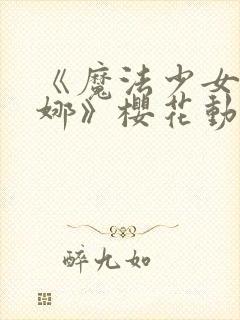 《魔法少女
娜》櫻花動
醉九如